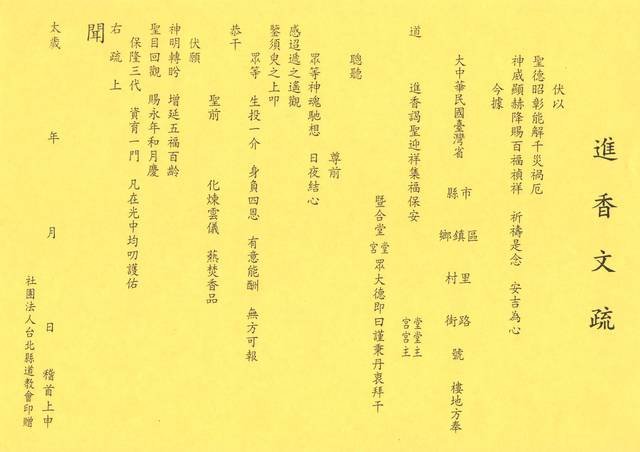 進香文疏
伏以
聖德昭彰能解千災禍厄
神威顯赫降賜百福禎祥　祈禱是念　安吉為心
今據
大中華民國臺灣省　縣市　鄉鎮區　村里　街路　號　樓地方奉
道　進香謁聖迎祥集福保安　堂宮　堂主宮主
暨合堂宮　眾大德即日謹秉丹衷拜干
聰聽　尊前
眾等神魂馳想　日夜結心
感迢遞之遙觀
鑒須臾之上叩
眾等　生投一介　身負四恩　有意能酬　無方可報
恭干
聖前　化煉雲儀　爇焚香品
伏願
神明轉盻　增延五福百齡
聖目回觀　賜永年和月慶
保隆三代　資育一門　凡在光中均叨護佑
右疏上
聞
太歲　年　月　日　稽首上申
社團法人台北縣道教會印贈